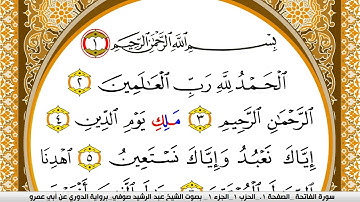 بِسْمِ اللَّهِ الرَّحْمَٰنِ الرَّحِيمِ ١
الْحَمْدُ لِلَّهِ رَبِّ الْعَالَمِينَ ٢
الرَّحْمَٰنِ الرَّحِيمِ ٣ مَلِكِ يَوْمِ الدِّينِ ٤
إِيَّاكَ نَعْبُدُ وَإِيَّاكَ نَسْتَعِينُ ٥ اهْدِنَا
سورة الفاتحة_الصفحة 1_ الحزب 1_الجزء 1_ بصوت الشيخ عبد الرشيد صوفي_برواية الدوري عن أبي عمرو